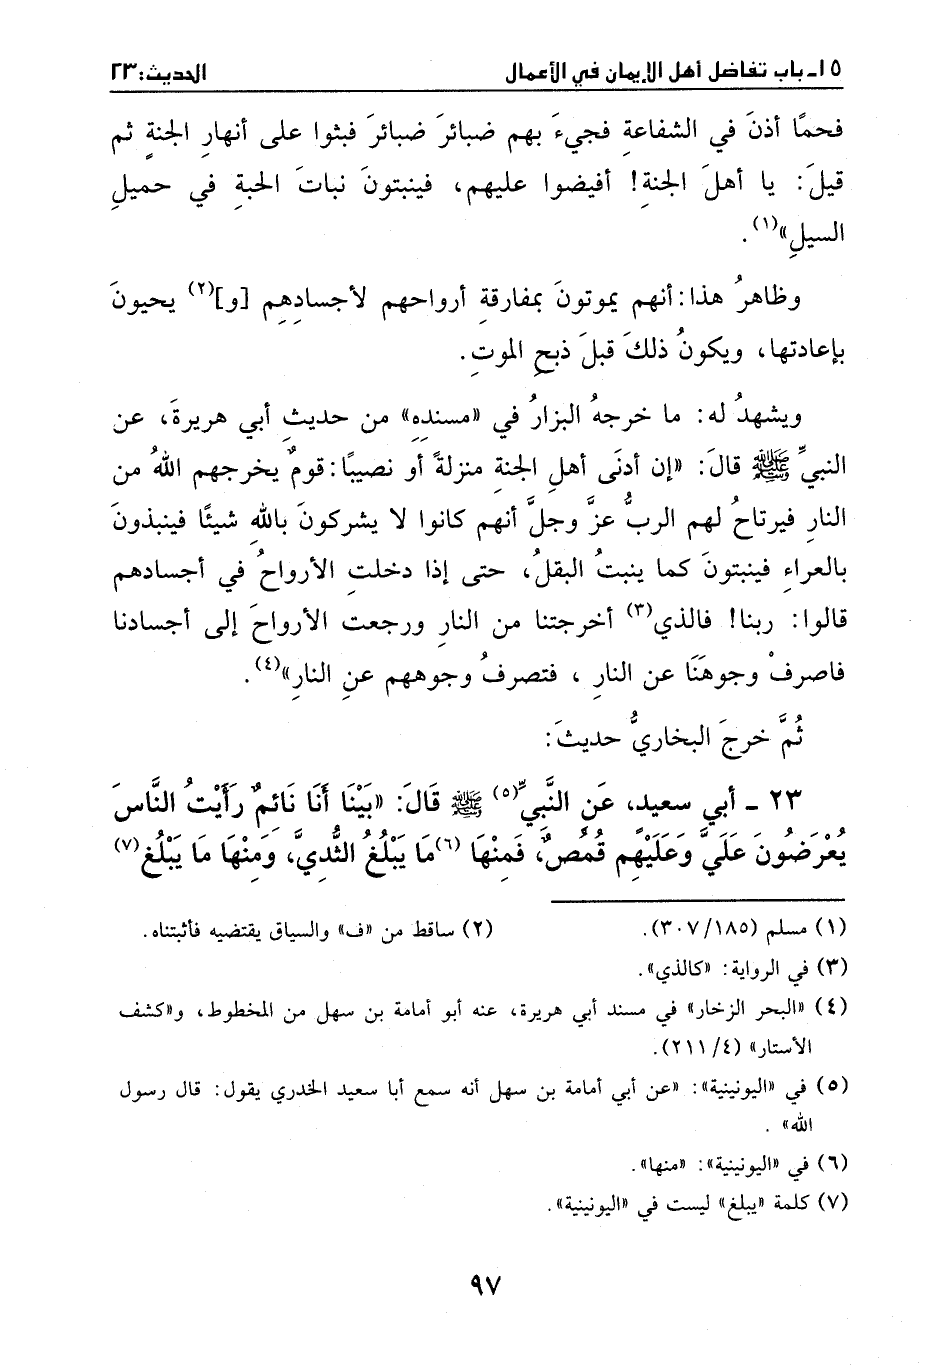 ١٥ـ باب تفاضل أهل الإيمان في الأعمال الحديث: ٢٣
فحمًا أذنَ في الشفاعةِ فجيءَ بهم ضبائرَ ضبائرَ فبثوا على أنهارِ الجنةِ ثم
قيلَ: يا أهلَ الجنةِ! أفيضوا عليهم، فينبتونَ نباتَ الحبةِ في حميلِ
السيلِ»(١).
وظاهرُ هذا: أنهم يموتونَ بمفارقةِ أرواحهم لأجسادِهِم [و](٢) يحيونَ
بإعادتها، ويكونُ ذلكَ قبلَ ذبحِ الموتِ.
ويشهدُ له: ما خرجهُ البزارُ في «مسندِهِ» من حديثِ أبي هريرةَ، عن
النبيِّ ﷺ قالَ: «إن أدنَى أهلِ الجنةِ منزلةً أو نصيبًا: قومٌ يخرجهم اللهُ من
النارِ فيرتاحُ لهم الربُّ عزَّ وجلَّ أنهم كانوا لا يشركونَ باللهِ شيئًا فينبذونَ
بالعراءِ فينبتونَ كما ينبتُ البقلُ، حتى إذا دخلتِ الأرواحُ في أجسادهم
قالوا: ربنا! فالذي(٣) أخرجتنا من النارِ ورجعت الأرواحَ إلى أجسادنا
فاصرفْ وجوهَنَا عن النارِ ، فتصرفُ وجوههم عنِ النارِ»(٤).
ثُمَّ خرجَ البخاريُّ حديثَ:
٢٣ ـ أبي سعيد، عَنِ النَّبِيِّ(٥) ﷺ قَالَ: «بَيْنَا أَنَا نَائِمٌ رَأَيْتُ النَّاسَ
يُعْرَضُونَ عَلَيَّ وَعَلَيْهِم قُمُصٌ، فَمِنْهَا (٦)مَا يَبْلُغُ الثُّدِيَّ، وَمِنْهَا مَا يَبْلُغ(٧)
(١) مسلم (٣٠٧/١٨٥). (٢) ساقط من «ف» والسياق يقتضيه فأثبتناه.
(٣) في الرواية: «كالذي».
(٤) «البحر الزخار» في مسند أبي هريرة، عنه أبو أمامة بن سهل من المخطوط، و«كشف
الأستار» (٤/ ٢١١).
(٥) في «اليونينية»: «عن أبي أمامة بن سهل أنه سمع أبا سعيد الخدري يقول: قال رسول
الله» .
(٦) في «اليونينية»: «منها».
(٧) كلمة «يبلغ» ليست في «اليونينية».
٩٧